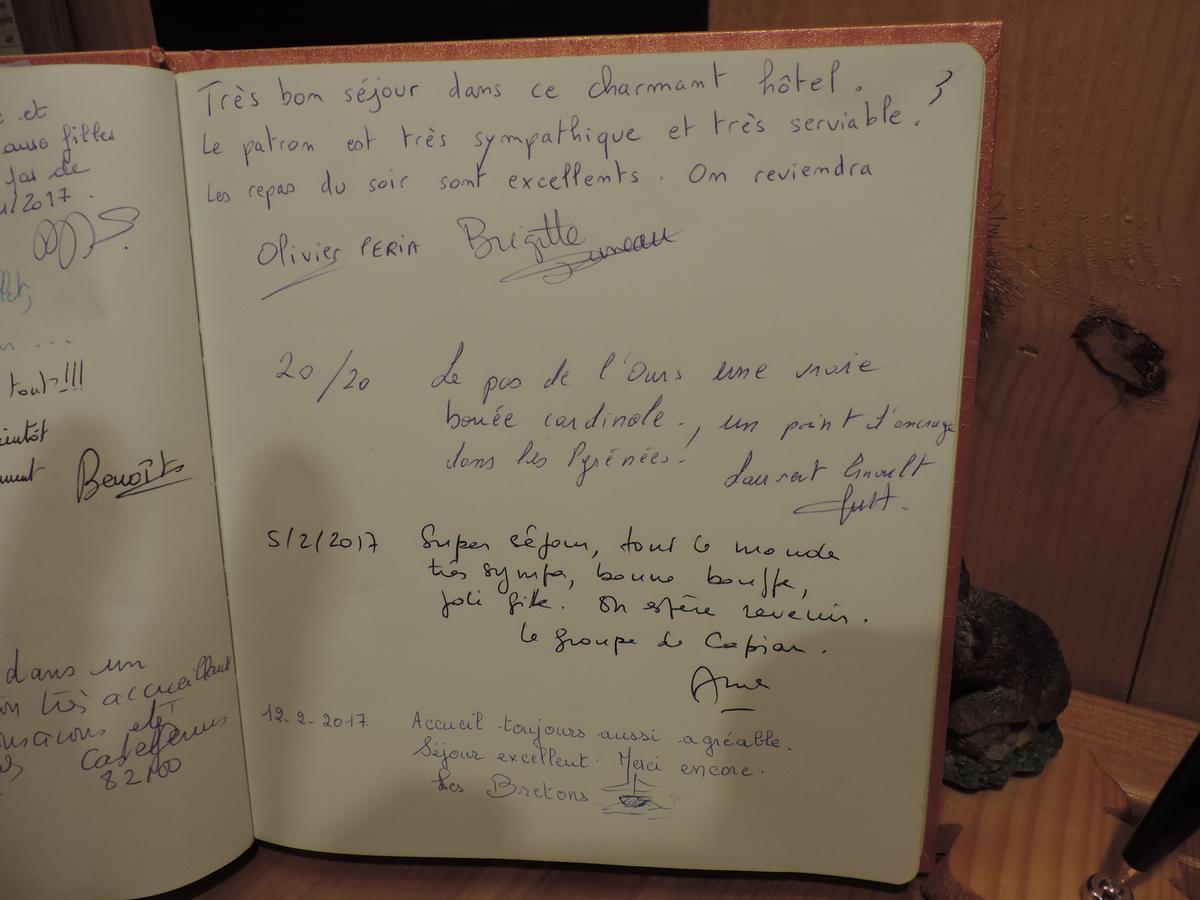 et
filles
de
/2017.
tout !!!
Benoît
dans un
très accueillant
Castelferrus
82100
3
Très bon séjour dans ce charmant hôtel.
Le patron est très sympathique et très serviable.
Les repas du soir sont excellents. On reviendra
Olivier PERIA Brigitte
20/20 Le pas de l'Ours une vraie
bouée cardinale., un point d'ancrage
dans les Pyrénées.
Laurent
5/2/2017 Super séjour, tout le monde
très sympa, bonne bouffe,
joli gîte. On espère revenir.
le groupe de Capian.
Anne
12-2-2017 Accueil toujours aussi agréable.
Séjour excellent. Merci encore.
Les Bretons